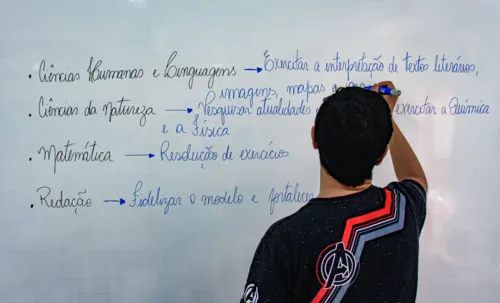 • Ciências Humanas e Linguagens → Exercitar a interpretação de textos literários,
imagens, mapas
• Ciências da Natureza → Pesquisar atualidades exercitar a Química
e a Física
• Matemática → Resolução de exercícios
• Redação → Fidelizar o modelo e fortalecer